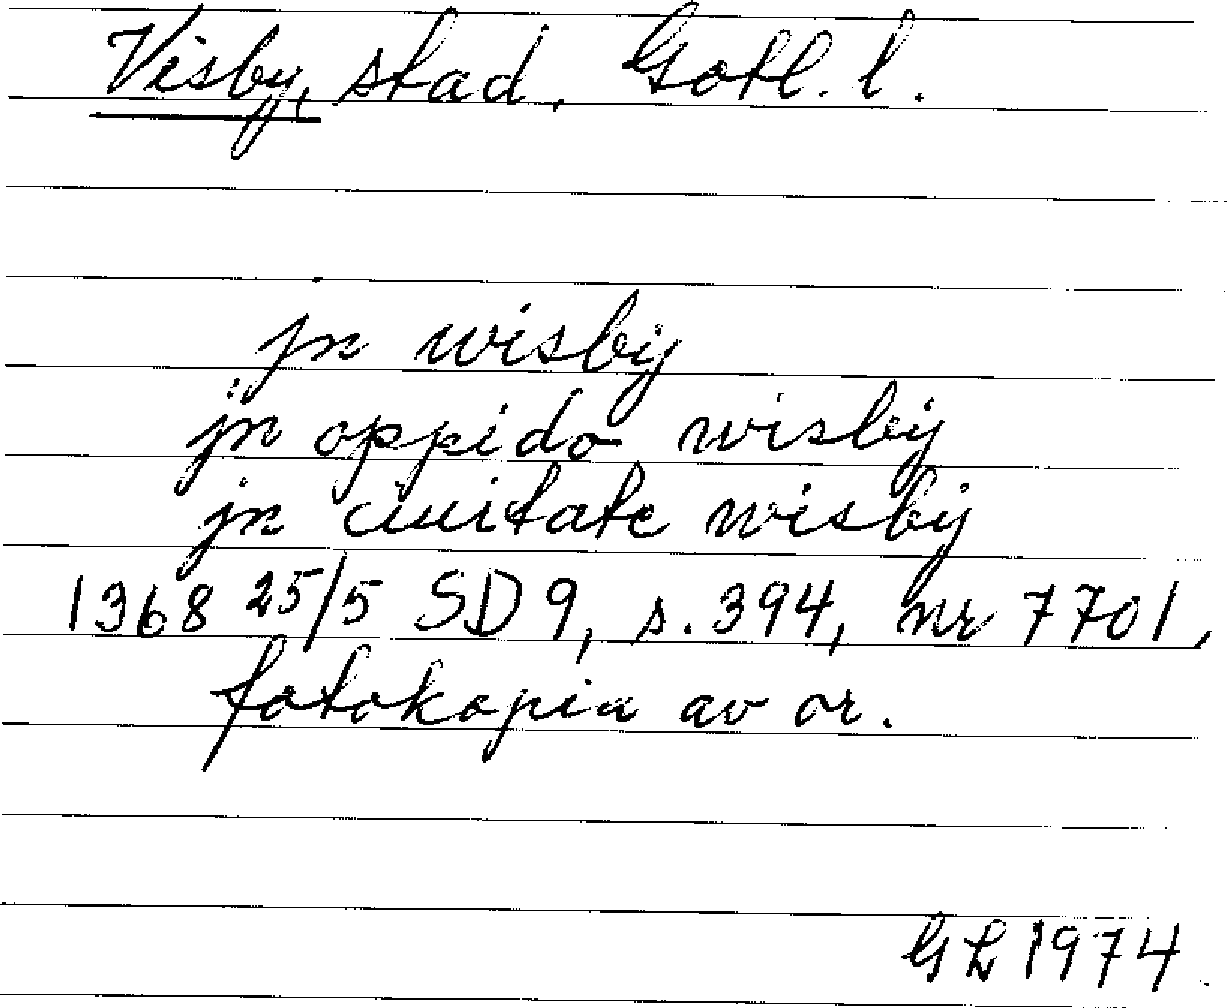 Visby, stad, Gotl. l.
jn wisbÿ
jn oppido wisbÿ
jn ciuitate wisbÿ
1368 25/5 SD 9, s. 394, nr 7701,
fotokopia av or.
GL 1974